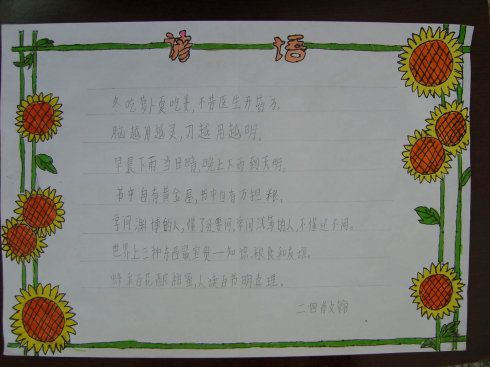 谚 语
冬吃萝卜夏吃姜,不劳医生开药方。
脑越用越灵,刀越用越明。
早晨下雨当日晴,晚上下雨到天明。
书中自有黄金屋,书中自有万担粮。
学问渊博的人,懂了还要问,学问浅薄的人,不懂还不问。
世界上三种东西最宝贵—知识、粮食和友谊。
蜂采百花酿甜蜜,人读百书明真理。
二四